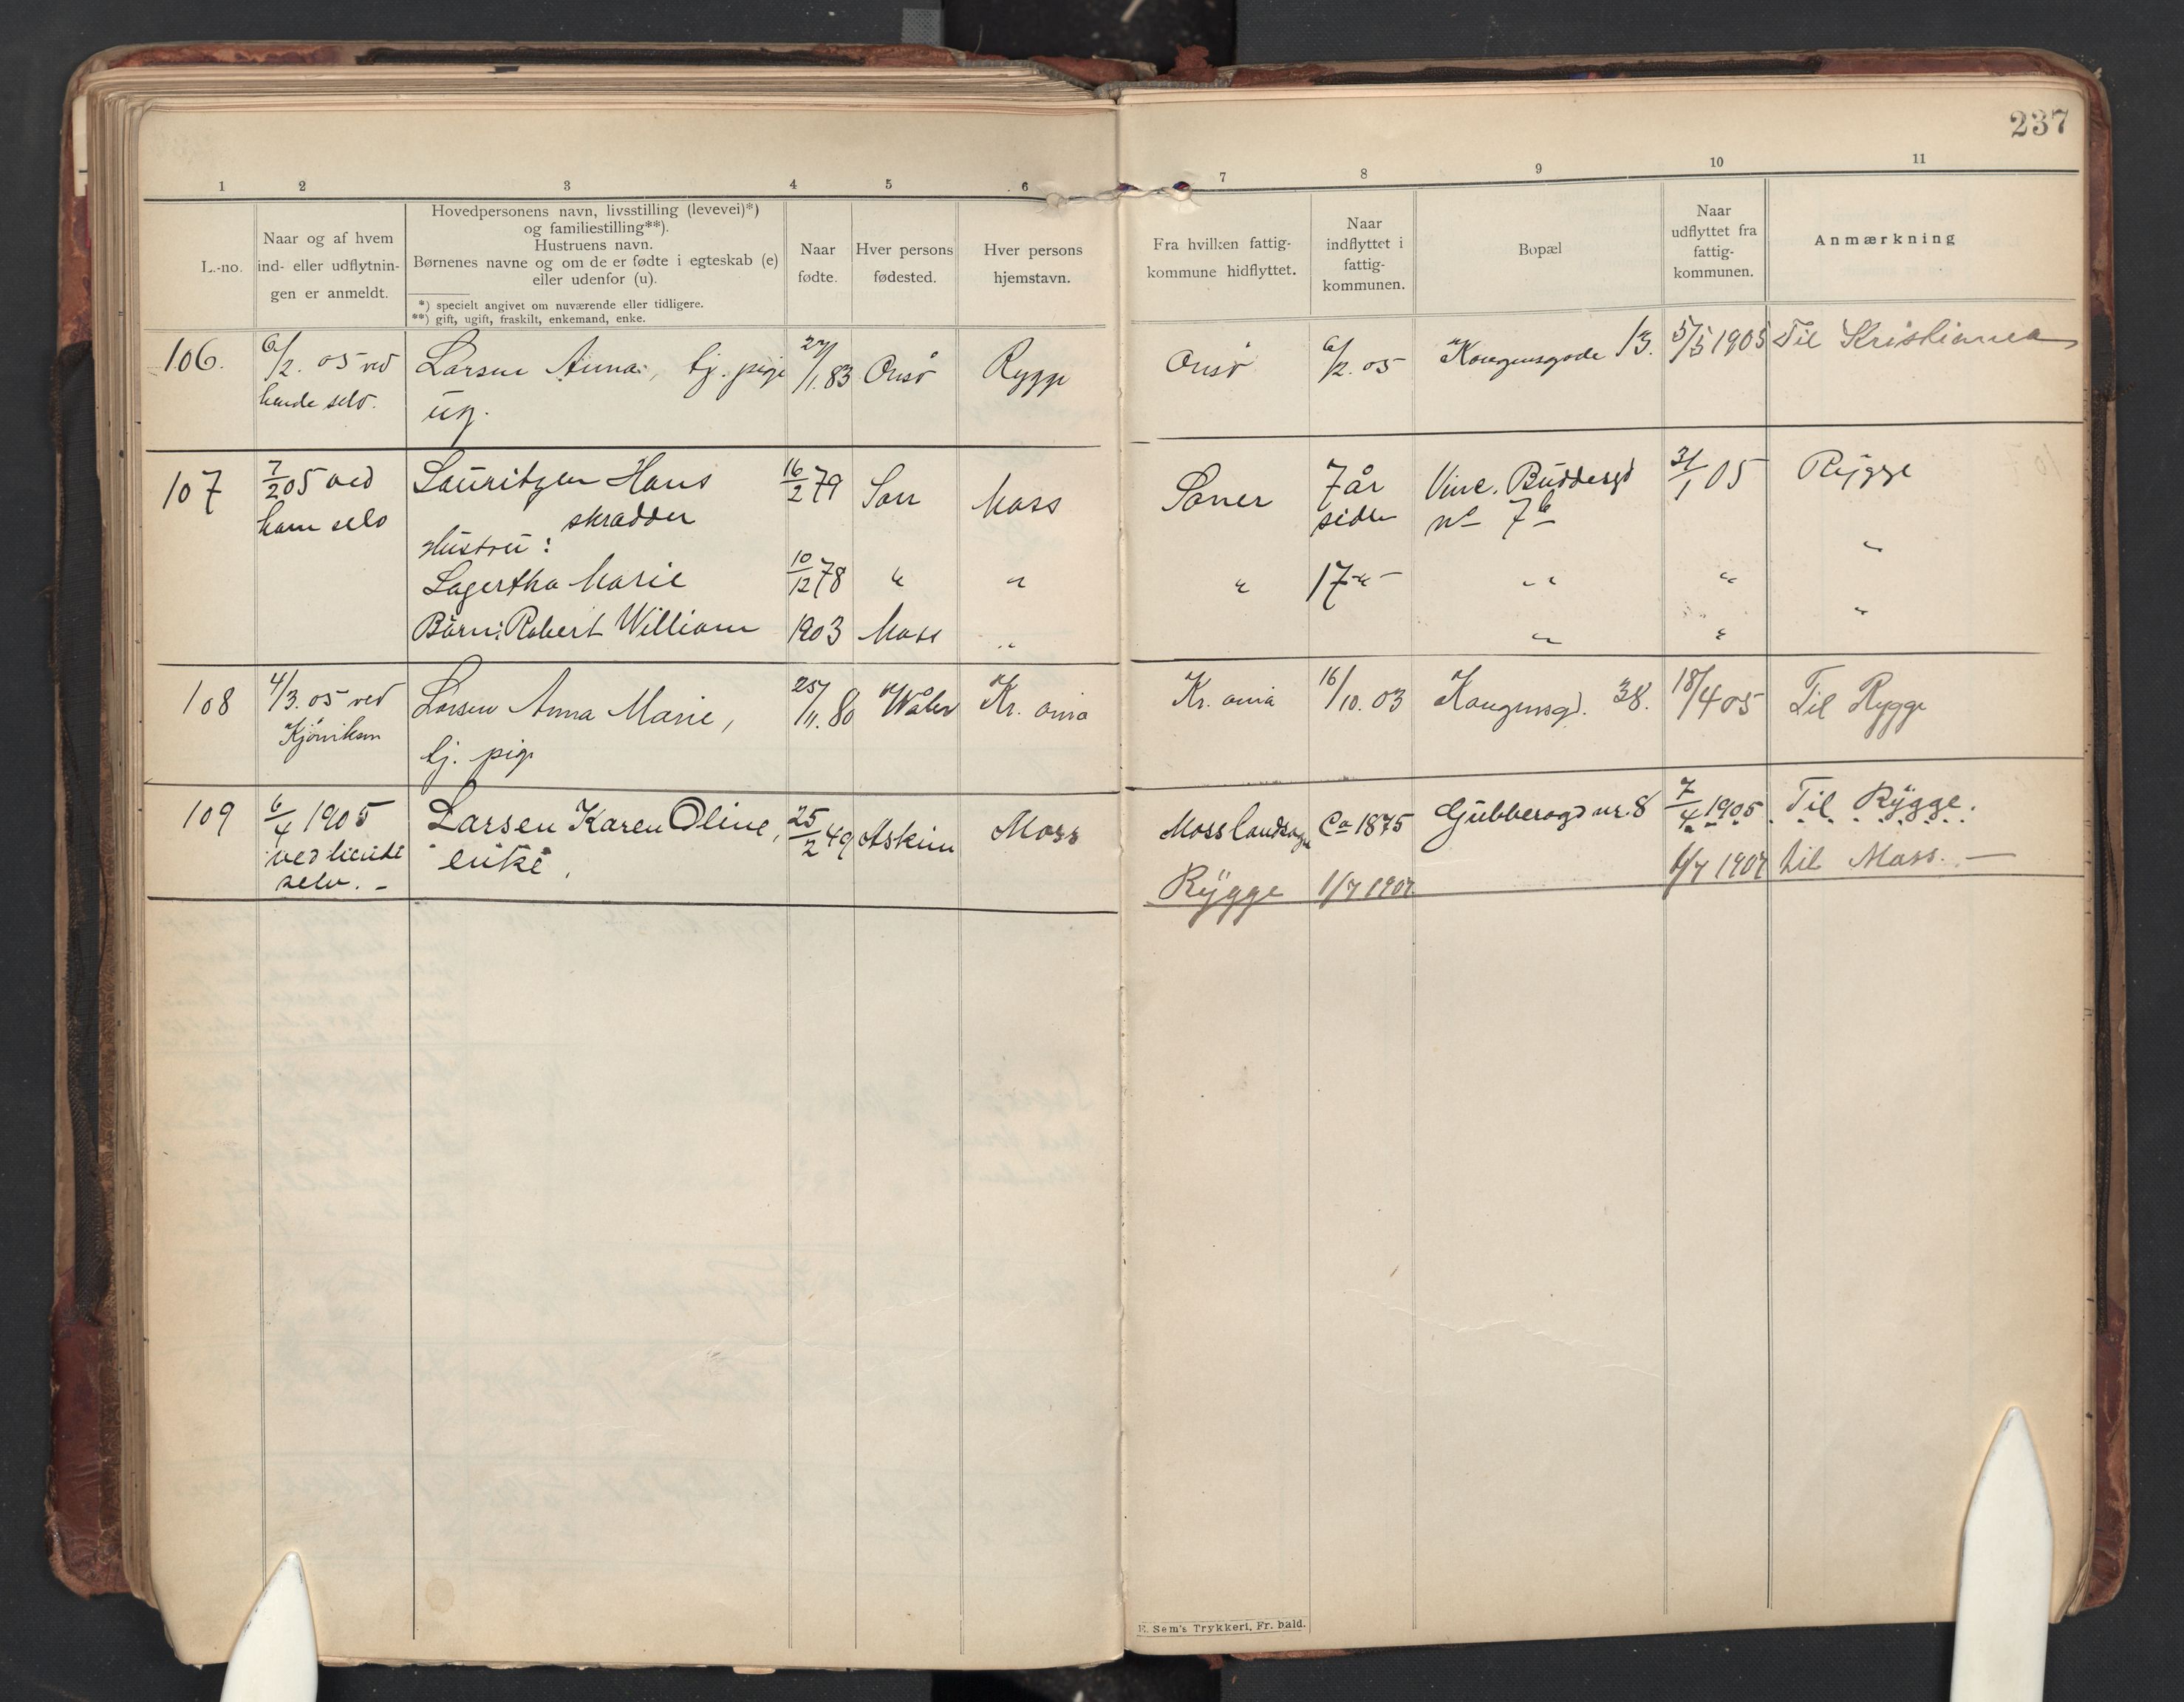 237
1 2 3 4 5 6 7 8 9 10 11
L.-no.
Naar og af hvem
ind- eller udflytnin-
gen er anmeldt.
Hovedpersonens navn, livsstilling (levevei)*)
og familiestilling**).
Hustruens navn.
Børnenes navne og om de er fødte i egteskab (e)
eller udenfor (u).
*) specielt angivet om nuværende eller tidligere.
**) gift, ugift, fraskilt, enkemand, enke.
Naar
fødte.
Hver persons
fødested.
Hver persons
hjemstavn.
Fra hvilken fattig-
kommune hidflyttet.
Naar
indflyttet i
fattig-
kommunen.
Bopæl
Naar
udflyttet fra
fattig-
kommunen.
Anmærkning
106. 6/2. 05 ved Larsen Anna, tj. pige 27/1.83 Onsö Rygge Onsö 6/2. 05 Kongensgade 13. 5/5 1905 Til Kristiania
hende selv. ug.
107 7/2 05 ved Lauritzen Hans 16/2 79 Son Moss Soner 7 år Vinc. Buddesgd 31/1 05 Rygge
ham selv skrædder siden no 7b
Hustru: "
Lagertha Marie 10/12 78 " " " 17 " - " " "
Börn: Robert William 1903 Moss " " " "
108 4/3. 05 ved Larsen Anna Marie, 25/11. 80 Våler Kr. ania Kr. ania 16/10. 03 Kongensgd. 38. 18/4 05 Til Rygge
tj. pige
109 6/4 1905 Larsen Karen Oline, 25/2 49 Askim Moss Moss landsogn Ca 1875 Gubberogd nr. 8 7/4 1905 Til Rygge.
ved hende enke,
selv. - Rygge 1/7 1907. 1/7 1907 til Moss. -
E. Sem's Trykkeri, Fr. hald.